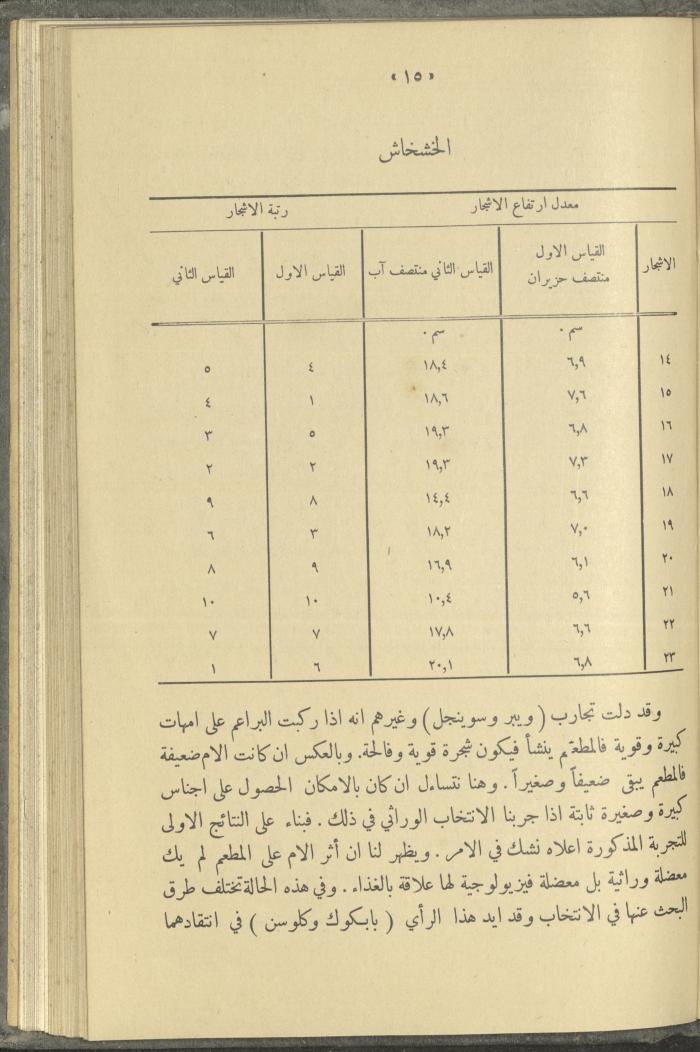 «١٥»
الخشخاش
معدل ارتفاع الاشجار رتبة الاشجار
الاشجار القياس الاول منتصف حزيران القياس الثاني منتصف آب القياس الاول القياس الثاني
سم٠ سم٠
١٤ ٦,٩ ١٨,٤ ٤ ٥
١٥ ٧,٦ ١٨,٦ ١ ٤
١٦ ٦,٨ ١٩,٣ ٥ ٣
١٧ ٧,٣ ١٩,٣ ٢ ٢
١٨ ٦,٦ ١٤,٤ ٨ ٩
١٩ ٧,٠ ١٨,٢ ٣ ٦
٢٠ ٦,١ ١٦,٩ ٩ ٨
٢١ ٥,٦ ١٠,٤ ١٠ ١٠
٢٢ ٦,٦ ١٧,٨ ٧ ٧
٢٣ ٦,٨ ٢٠,١ ٦ ١
وقد دلت تجارب (ويبر وسوينجل) وغيرهم انه اذا ركبت البراعم على امهات
كبيرة وقوية فالمطعم ينشأ فيكون شجرة قوية وفالحة. وبالعكس ان كانت الام ضعيفة
فالمطعم يبقى ضعيفاً وصغيراً. وهنا نتساءل ان كان بالامكان الحصول على اجناس
كبيرة وصغيرة ثابتة اذا جربنا الانتخاب الوراثي في ذلك. فبناء على النتائج الاولى
للتجربة المذكورة اعلاه نشك في الامر. ويظهر لنا ان أثر الام على المطعم لم يك
معضلة وراثية بل معضلة فيزيولوجية لها علاقة بالغذاء. وفي هذه الحالة تختلف طرق
البحث عنها في الانتخاب وقد ايد هذا الرأي (بابكوك وكلوسن) في انتقادهما